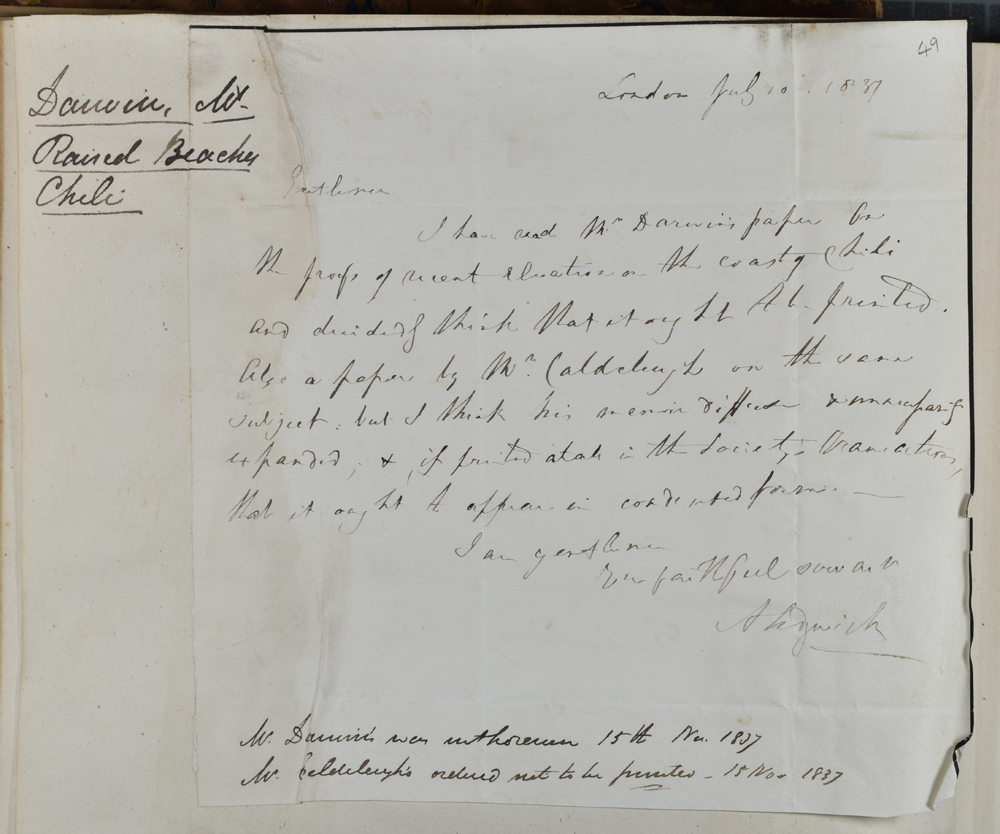 49
Darwin, Mr
Raised Beaches
Chili
London July 10. 1837
Gentlemen
I have read Mr. Darwin's paper On
the proofs of recent elevation on the coast of Chili
and decidedly think that it ought to be printed.
Also a paper by Mr. Caldcleugh on the same
subject: but I think his memoir diffuse & unnecessarily
expanded; &, if printed at all in the Society's Transactions,
that it ought to appear in condensed form. —
I am gentlemen
Your faithful servant
A Sedgwick
Mr. Darwin's was withdrawn 15th Nov. 1837
Mr. Caldcleugh's ordered not to be printed – 15 Nov 1837